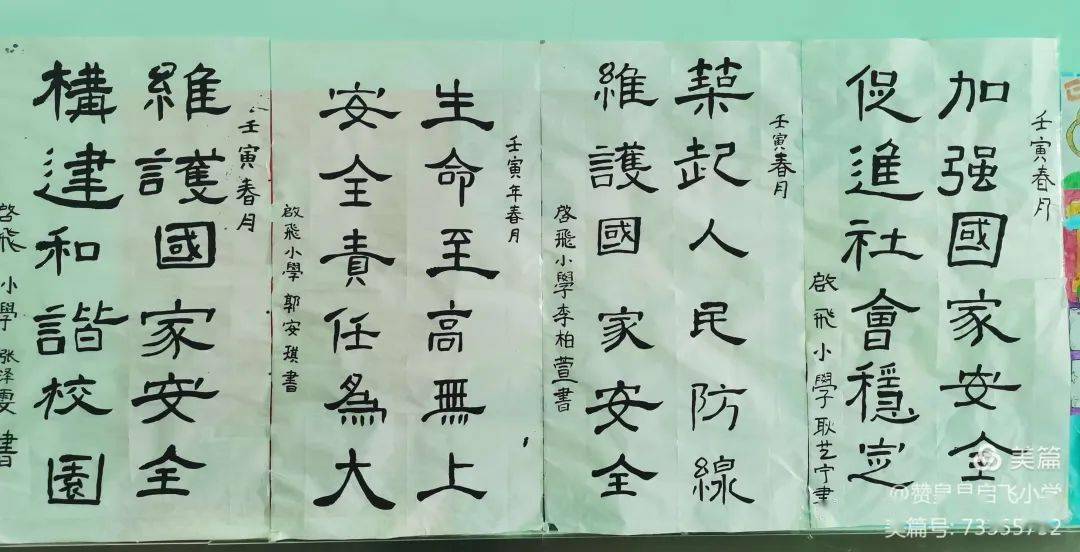 壬寅春月
加强國家安全
促進社會穩定
啟飛小學耿艺宁書
壬寅春月
築起人民防線
維護國家安全
啟飛小學李柏萱書
壬寅年春月
生命至高無上
安全責任為大
啟飛小學郭安琪書
壬寅春月
維護國家安全
構建和諧校園
啓飛小學张泽雯書
美篇
飞小学
美篇号: